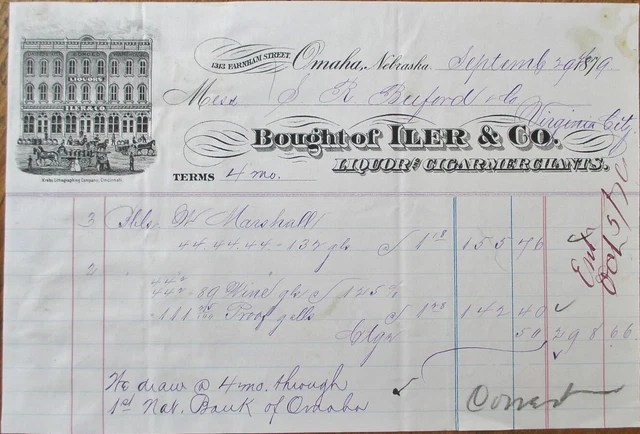 1313 FARNHAM STREET. Omaha, Nebraska. Septemb 29th 1879
LIQUORS
ILER & CO.
Mess S R Buford & Co
Virginia City
Bought of ILER & CO.
LIQUOR AND CIGAR MERCHANTS.
Krebs Lithographing Company, Cincinnati.
TERMS 4 mo.
3 Bbls W Marshall
44.44.44 - 132 gls 1 18 155 76
2
89 Wine gls 125 %
111 25/100 Proof galls 1 28 142 40
Ctge 50 298 66
To draw @ 4 mo. through
1st Nat. Bank of Omaha
Correct
Ent